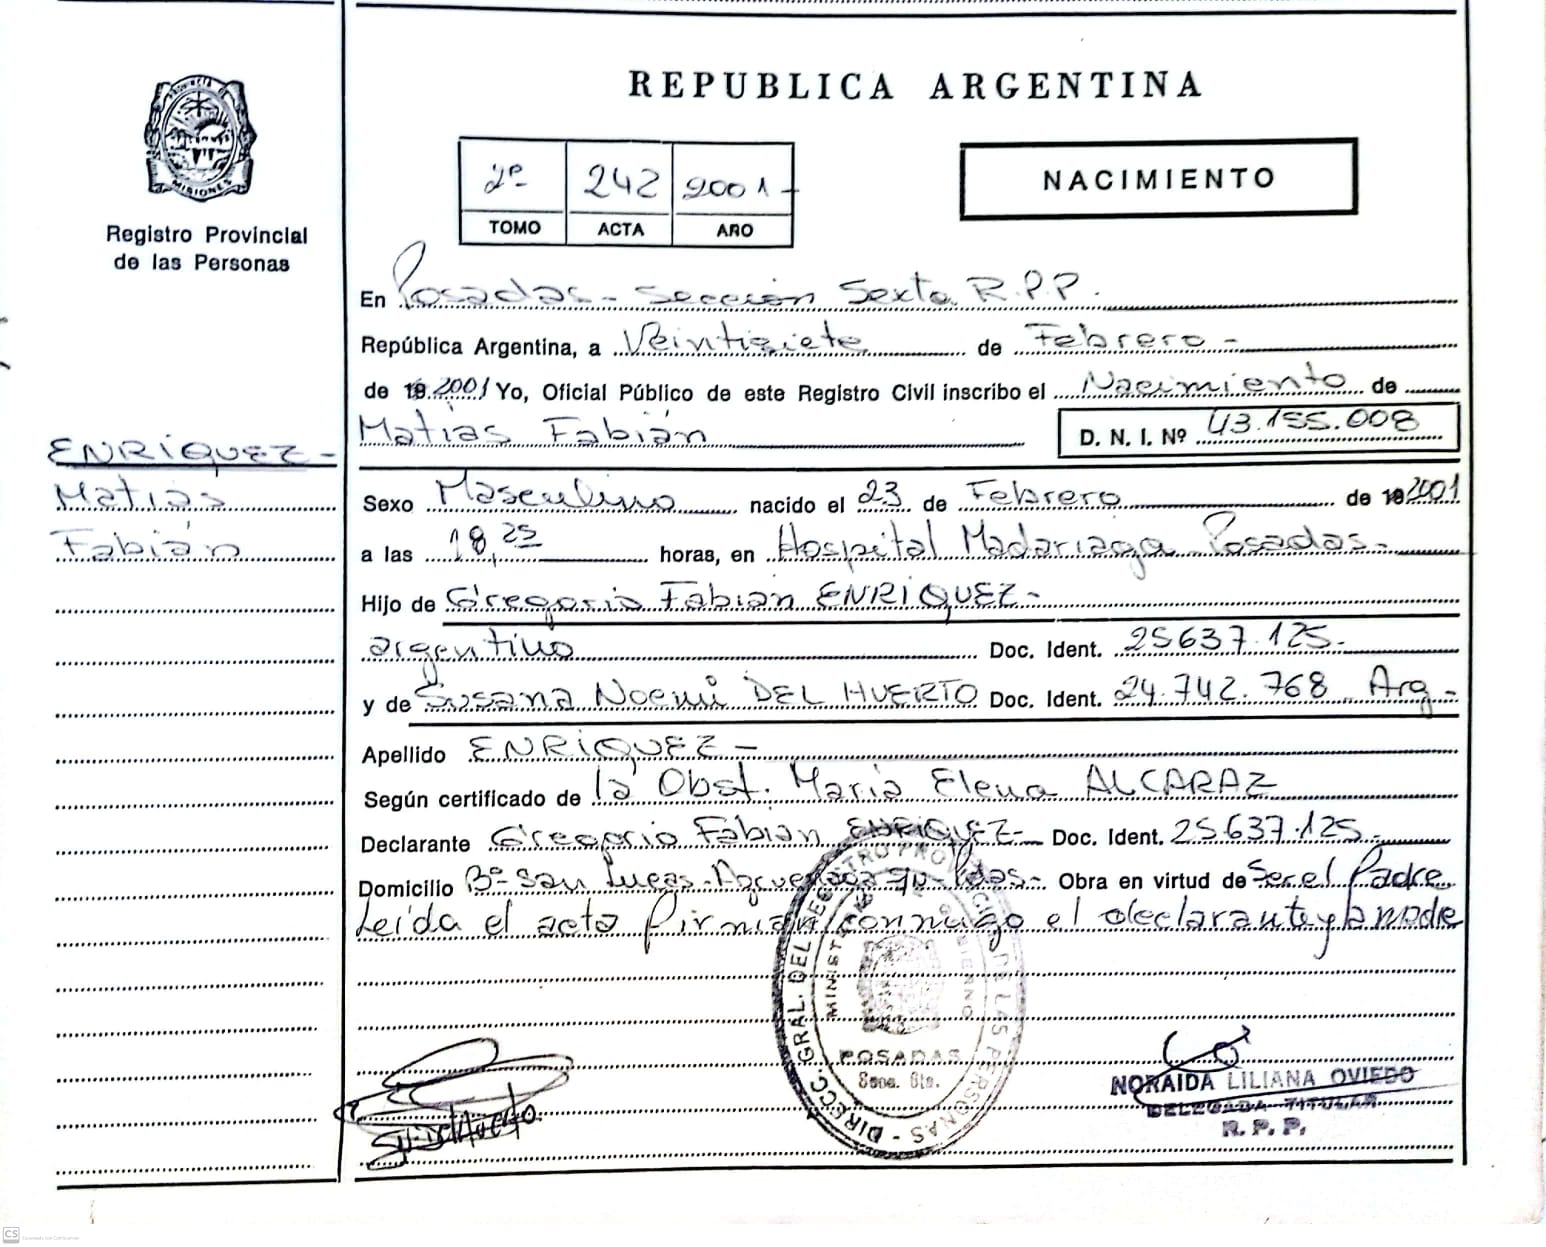 PROVINCIA
MISIONES
Registro Provincial
de las Personas
ENRIQUEZ -
Matias
Fabián
REPUBLICA ARGENTINA
2º 242 2001 -
TOMO ACTA AÑO
NACIMIENTO
En Posadas - Sección Sexta R.P.P.
República Argentina, a Veintisiete de Febrero -
de 19 2001 Yo, Oficial Público de este Registro Civil inscribo el Nacimiento de
Matias Fabián D. N. I. Nº 43.155.008
Sexo Masculino nacido el 23 de Febrero de 19 2001
a las 18,25 horas, en Hospital Madariaga Posadas -
Hijo de Gregorio Fabián ENRIQUEZ -
argentino Doc. Ident. 25637.125 -
y de Susana Noemi DEL HUERTO Doc. Ident. 24.742.768 Arg -
Apellido ENRIQUEZ -
Según certificado de la Obst. Maria Elena ALCARAZ
Declarante Gregorio Fabián ENRIQUEZ - Doc. Ident. 25.637.125 -
Domicilio Bº San Lucas - Pdas - Obra en virtud de Ser el Padre
Leída el acta firman conmigo el declarante y la madre
DIRECC. GRAL. DEL REGISTRO PROVINCIAL DE LAS PERSONAS -
MINISTERIO DE GOBIERNO
POSADAS
NORAIDA LILIANA OVIEDO
DELEGADA TITULAR
R. P. P.
CS